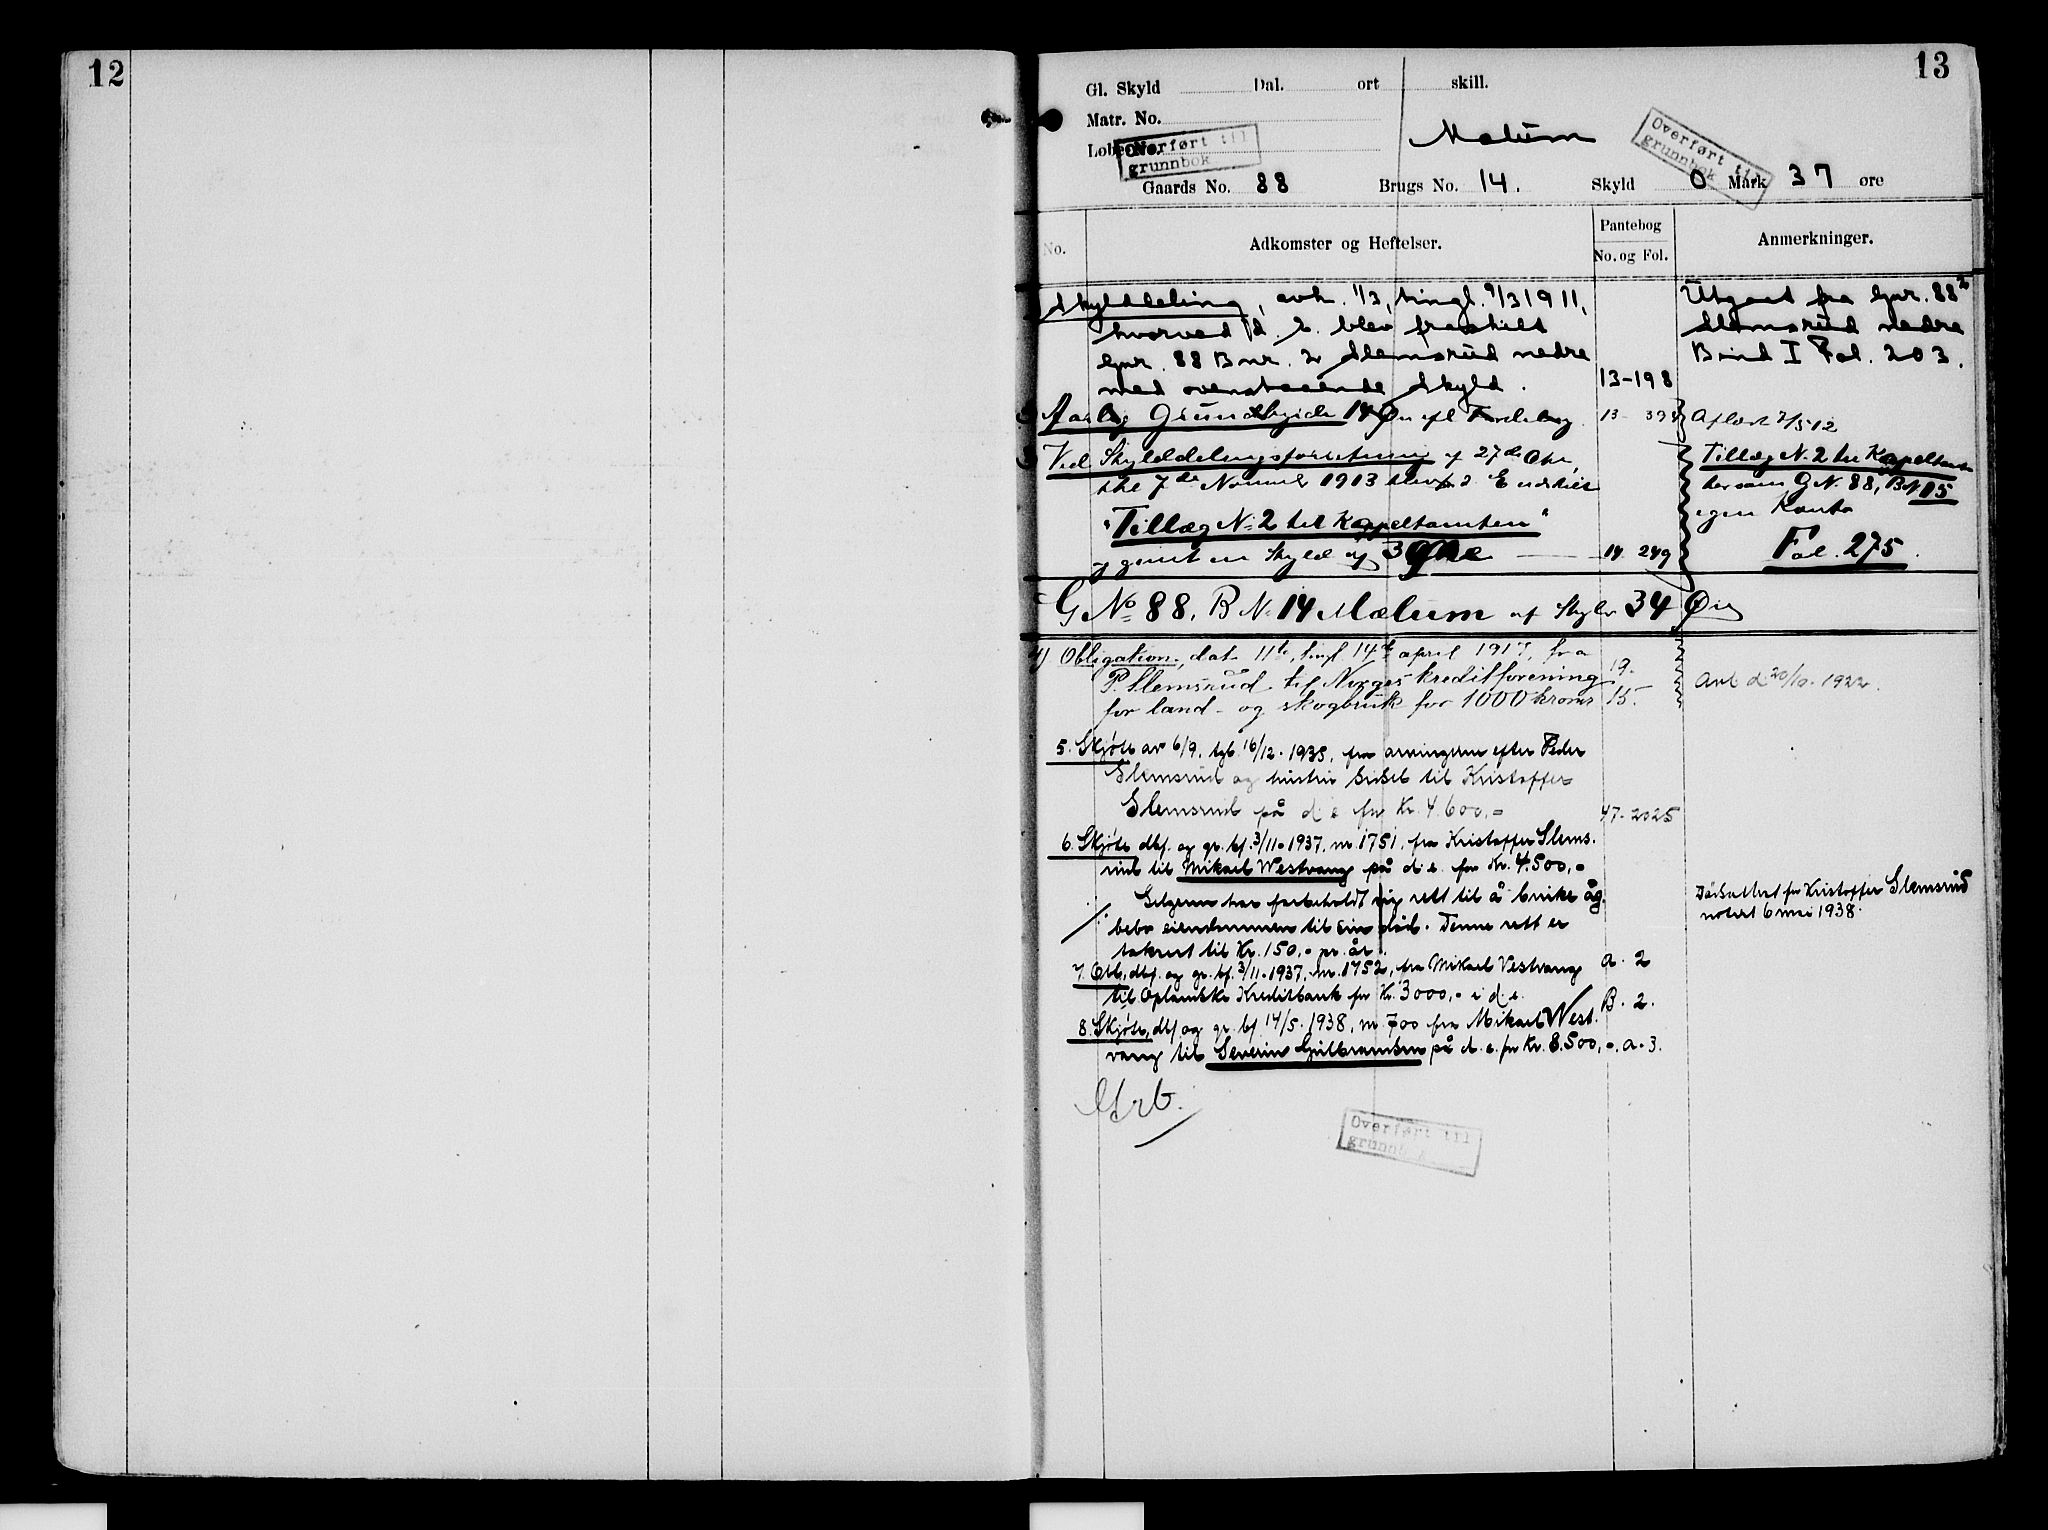 12
13
Gl. Skyld Dal. ort skill.
Matr. No.
Løbe No.
Mælum
Overført til
grunnbok
Overført til
grunnbok
Gaards No. 88 Brugs No. 14. Skyld 0 Mark 37 øre
No. Adkomster og Heftelser. Pantebog Anmerkninger.
No. og Fol.
Skylddeling, avh. 1/3, tingl. 9/3 1911,
hvorved d. e. blev fraskilt
Gnr. 88 Bnr. 2 Slemsrud nedre
med ovenstaaende Skyld. 13-198
Utgaat fra Gnr. 88 2
Slemsrud nedre
Bind I Fol. 203.
Aarlig Grundavgift 14 Øre efl Fordeling 13- Aflæst 7/5 12
Ved Skylddelingsforretning af 27de Okt,
thl 7de November 1913 blev d. E. udskilt
"Tillæg No 2 til Kapeltomten"
og givet en Skyld af 3 Øre 14 249
Tillæg No 2 til Kapeltomten
har som G No 88, B No 15
egen Konto
Fol. 275.
G No 88, B No 14 Mælum af Skyld 34 Øre
4) Obligation, dat. 11te, tingl 14de april 1917, fra
P. Slemsrud til Norges kreditforening 19.
for land- og skogbruk for 1000 kroner 15.
Avl d 20/10. 1922.
5. Skjøte av 6/9, tgl. 16/12. 1935, fra arvingerne efter Peder
Slemsrud og hustru Sidsel til Kristoffer
Slemsrud på d e for Kr. 4.600,- 47-2025
6. Skjøte dbf. og gr. bf. 3/11-1937, nr. 1751, fra Kristoffer Slems.
rud til Mikael Westvang på d. e. for Kr. 4.500,-
Selgeren har forbeholdt sig rett til å bruke og
bebo eiendommen til sin død. Denne rett er
taksert til Kr. 150,- pr. år. a. 2
Dødsattest for Kristoffer Slemsrud
notert 6 mai 1938.
7. Obl. dbf. og gr. bf. 3/11-1937, nr. 1752, fra Mikael Vestvang
til Oplandske Kreditbank for Kr. 3000,- i d. e. B. 2.
8. Skjøte, dbf og gr. bf. 14/5. 1938, nr. 700 fra Mikael West.
vang til Severin Gulbrandsen på d. e. for Kr. 8.500,-. a. 3.
Overført til
grunnbok